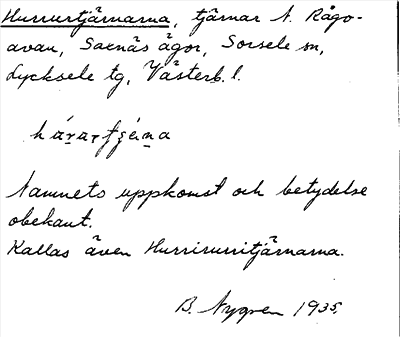 Hurrurrtjärnarna, tjärnar N. Rågo-
avan, Saxnäs ägor, Sorsele sn,
Lycksele tg, Västerb. l.
Namnets uppkomst och betydelse
obekant.
Kallas även Hurrirurritjärnarna.
B. Nygren 1935.